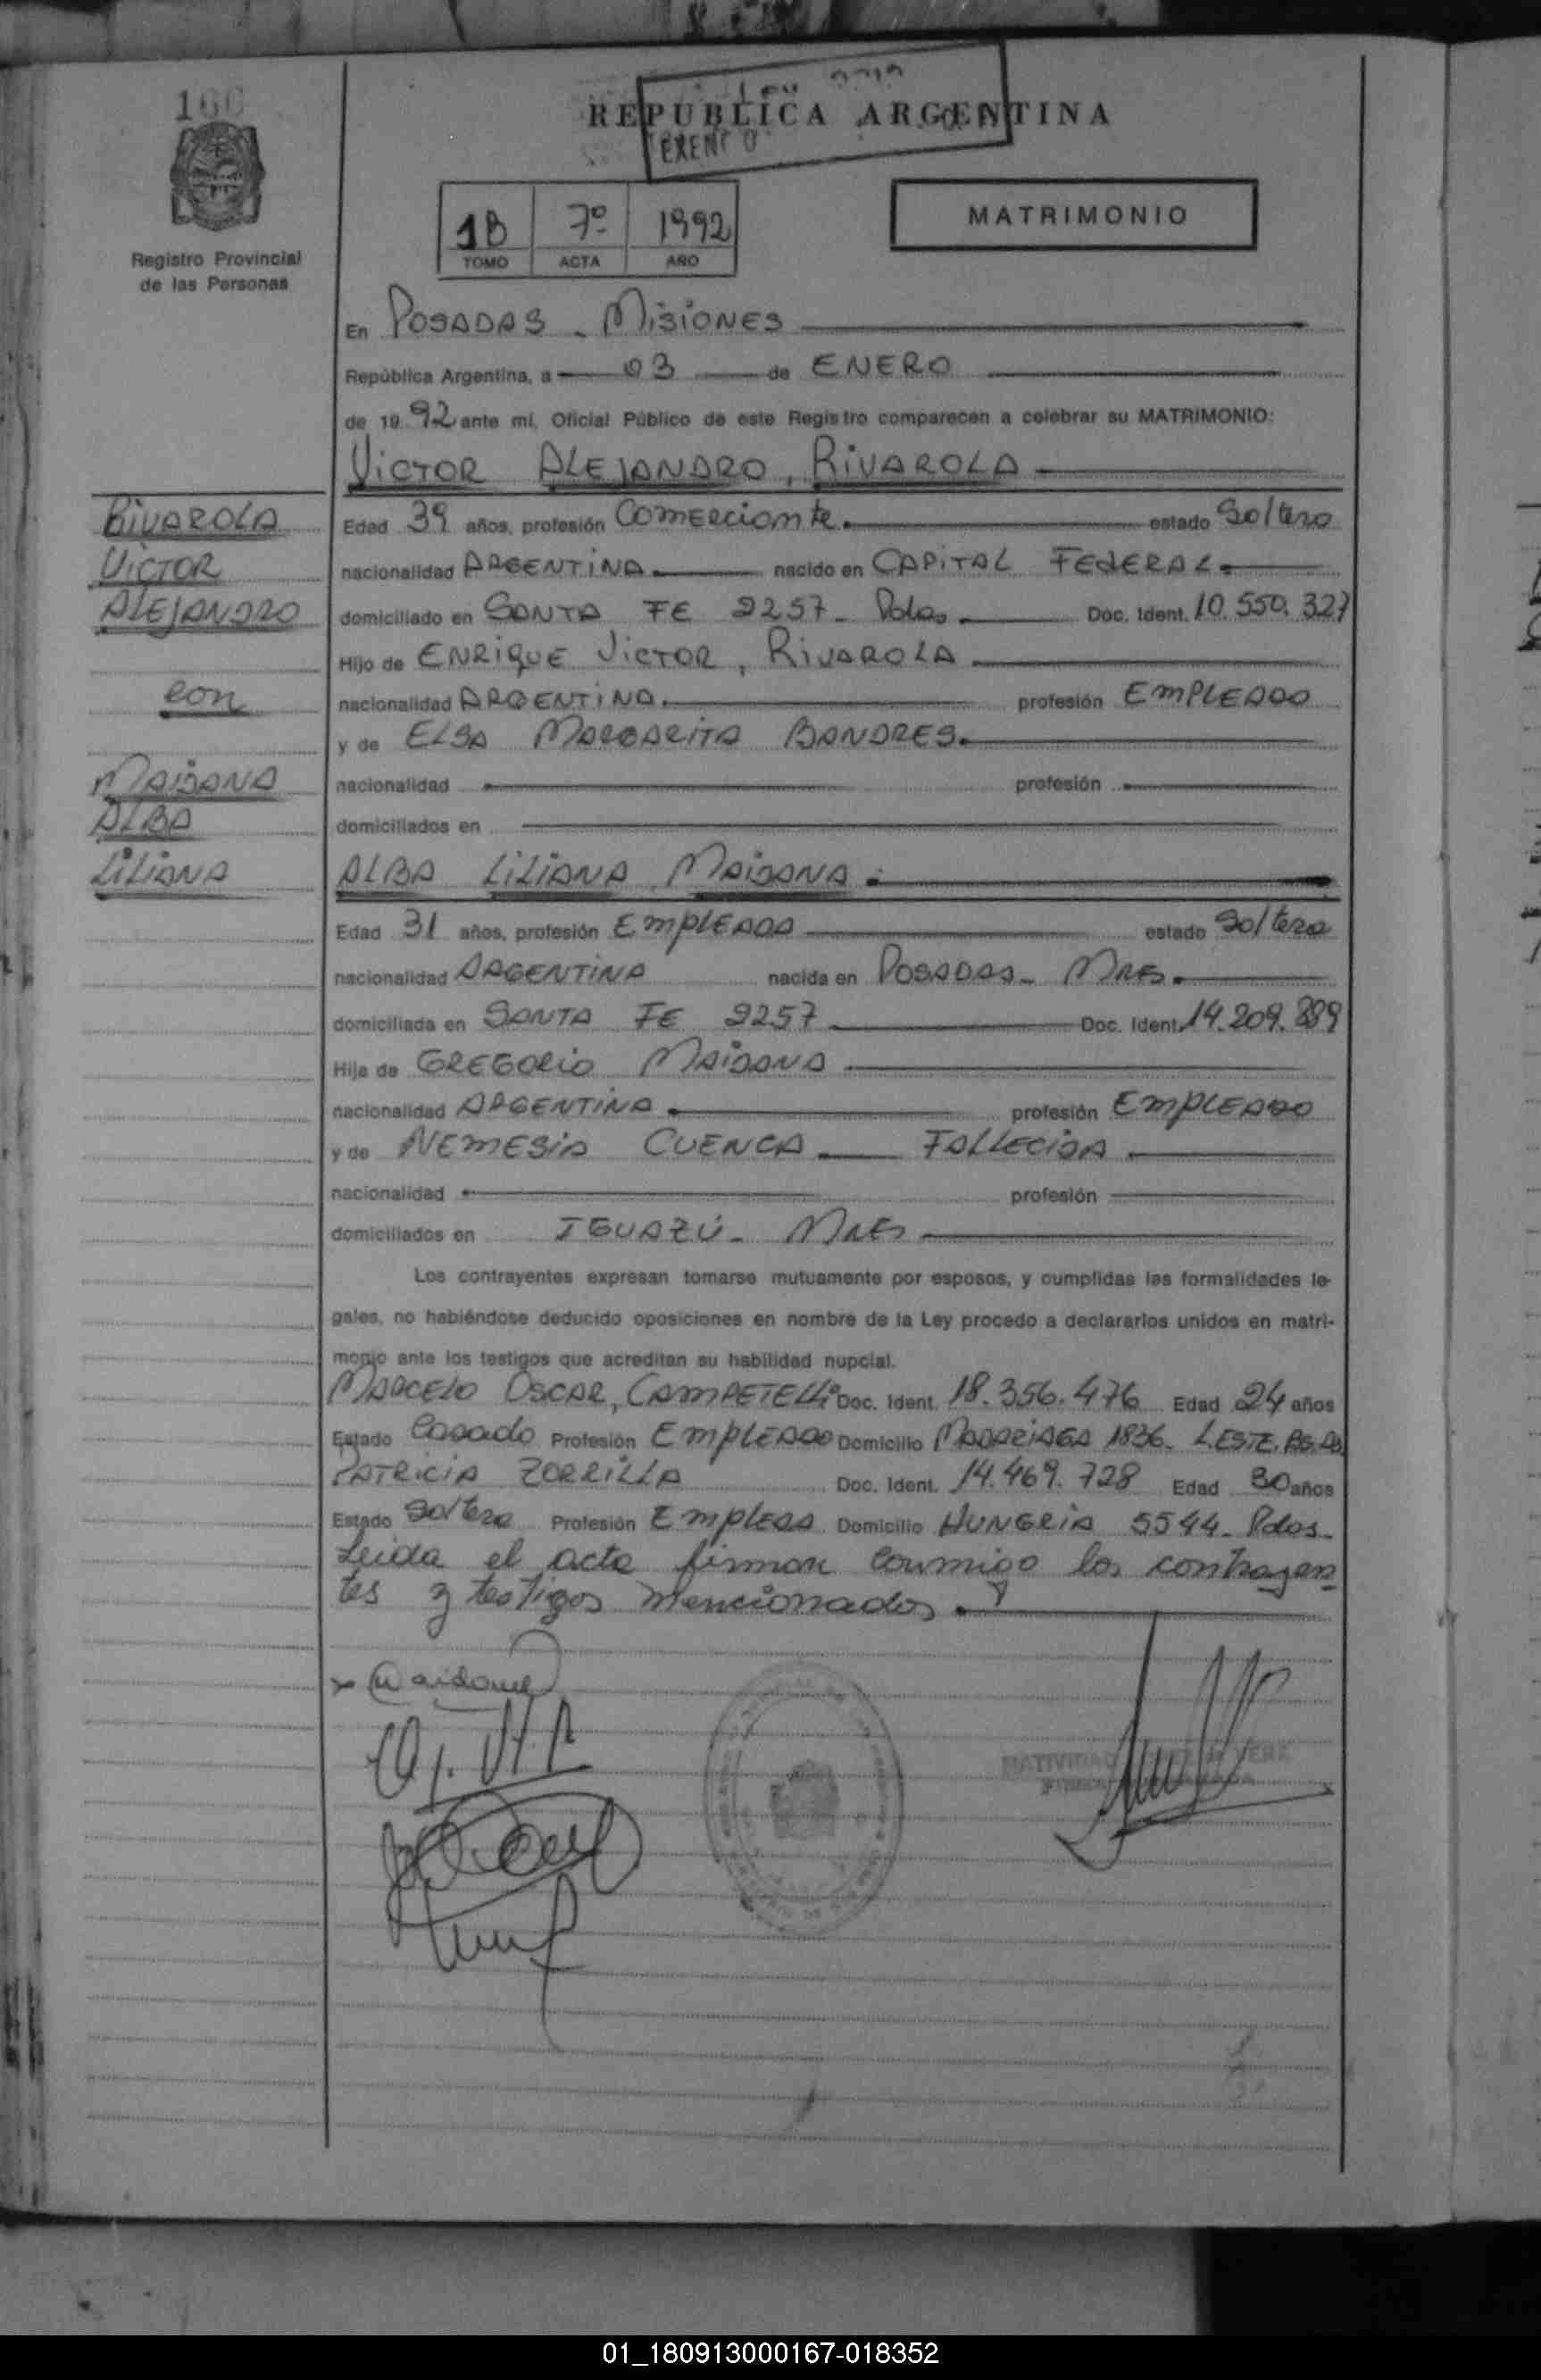 REPUBLICA ARGENTINA
EXENTO
Registro Provincial
de las Personas
1B 7º 1992
TOMO ACTA AÑO
MATRIMONIO
En POSADAS - MISIONES
República Argentina, a 03 de ENERO
de 1992 ante mí, Oficial Público de este Registro comparecen a celebrar su MATRIMONIO:
VICTOR ALEJANDRO, RIVAROLA
RIVAROLA
VICTOR
ALEJANDRO
con
MAIDANA
ALBA
LILIANA
Edad 39 años, profesión Comerciante. estado Soltero
nacionalidad ARGENTINA. nacido en CAPITAL FEDERAL.
domiciliado en SANTA FE 2257 - Pdas. Doc. Ident. 10.550.327
Hijo de ENRIQUE VICTOR, RIVAROLA
nacionalidad ARGENTINA. profesión EMPLEADO
y de ELSA MARGARITA BANDRES.
nacionalidad profesión
domiciliados en
ALBA LILIANA MAIDANA.
Edad 31 años, profesión EMPLEADA estado Soltera
nacionalidad ARGENTINA nacida en POSADAS - MNES.
domiciliada en SANTA FE 2257 Doc. Ident. 14.209.
Hija de GREGORIO MAIDANA
nacionalidad ARGENTINA. profesión EMPLEADO
y de NEMESIA CUENCA FALLECIDA
nacionalidad profesión
domiciliados en IGUAZÚ - MNES
Los contrayentes expresan tomarse mutuamente por esposos, y cumplidas las formalidades le-
gales, no habiéndose deducido oposiciones en nombre de la Ley procedo a declararlos unidos en matri-
monio ante los testigos que acreditan su habilidad nupcial.
MARCELO OSCAR, CAMPETELLI Doc. Ident. 18.356.476 Edad 24 años
Estado Casado Profesión EMPLEADO Domicilio MADARIAGA 1836. L.ESTE. BS.AS.
PATRICIA ZORRILLA Doc. Ident. 14.469.728 Edad 30 años
Estado Soltera Profesión EMPLEADA Domicilio HUNGRIA 5544 - Pdas.
Leida el acta firman conmigo los contrayen
tes y testigos mencionados.
Maidana
01_180913000167-018352